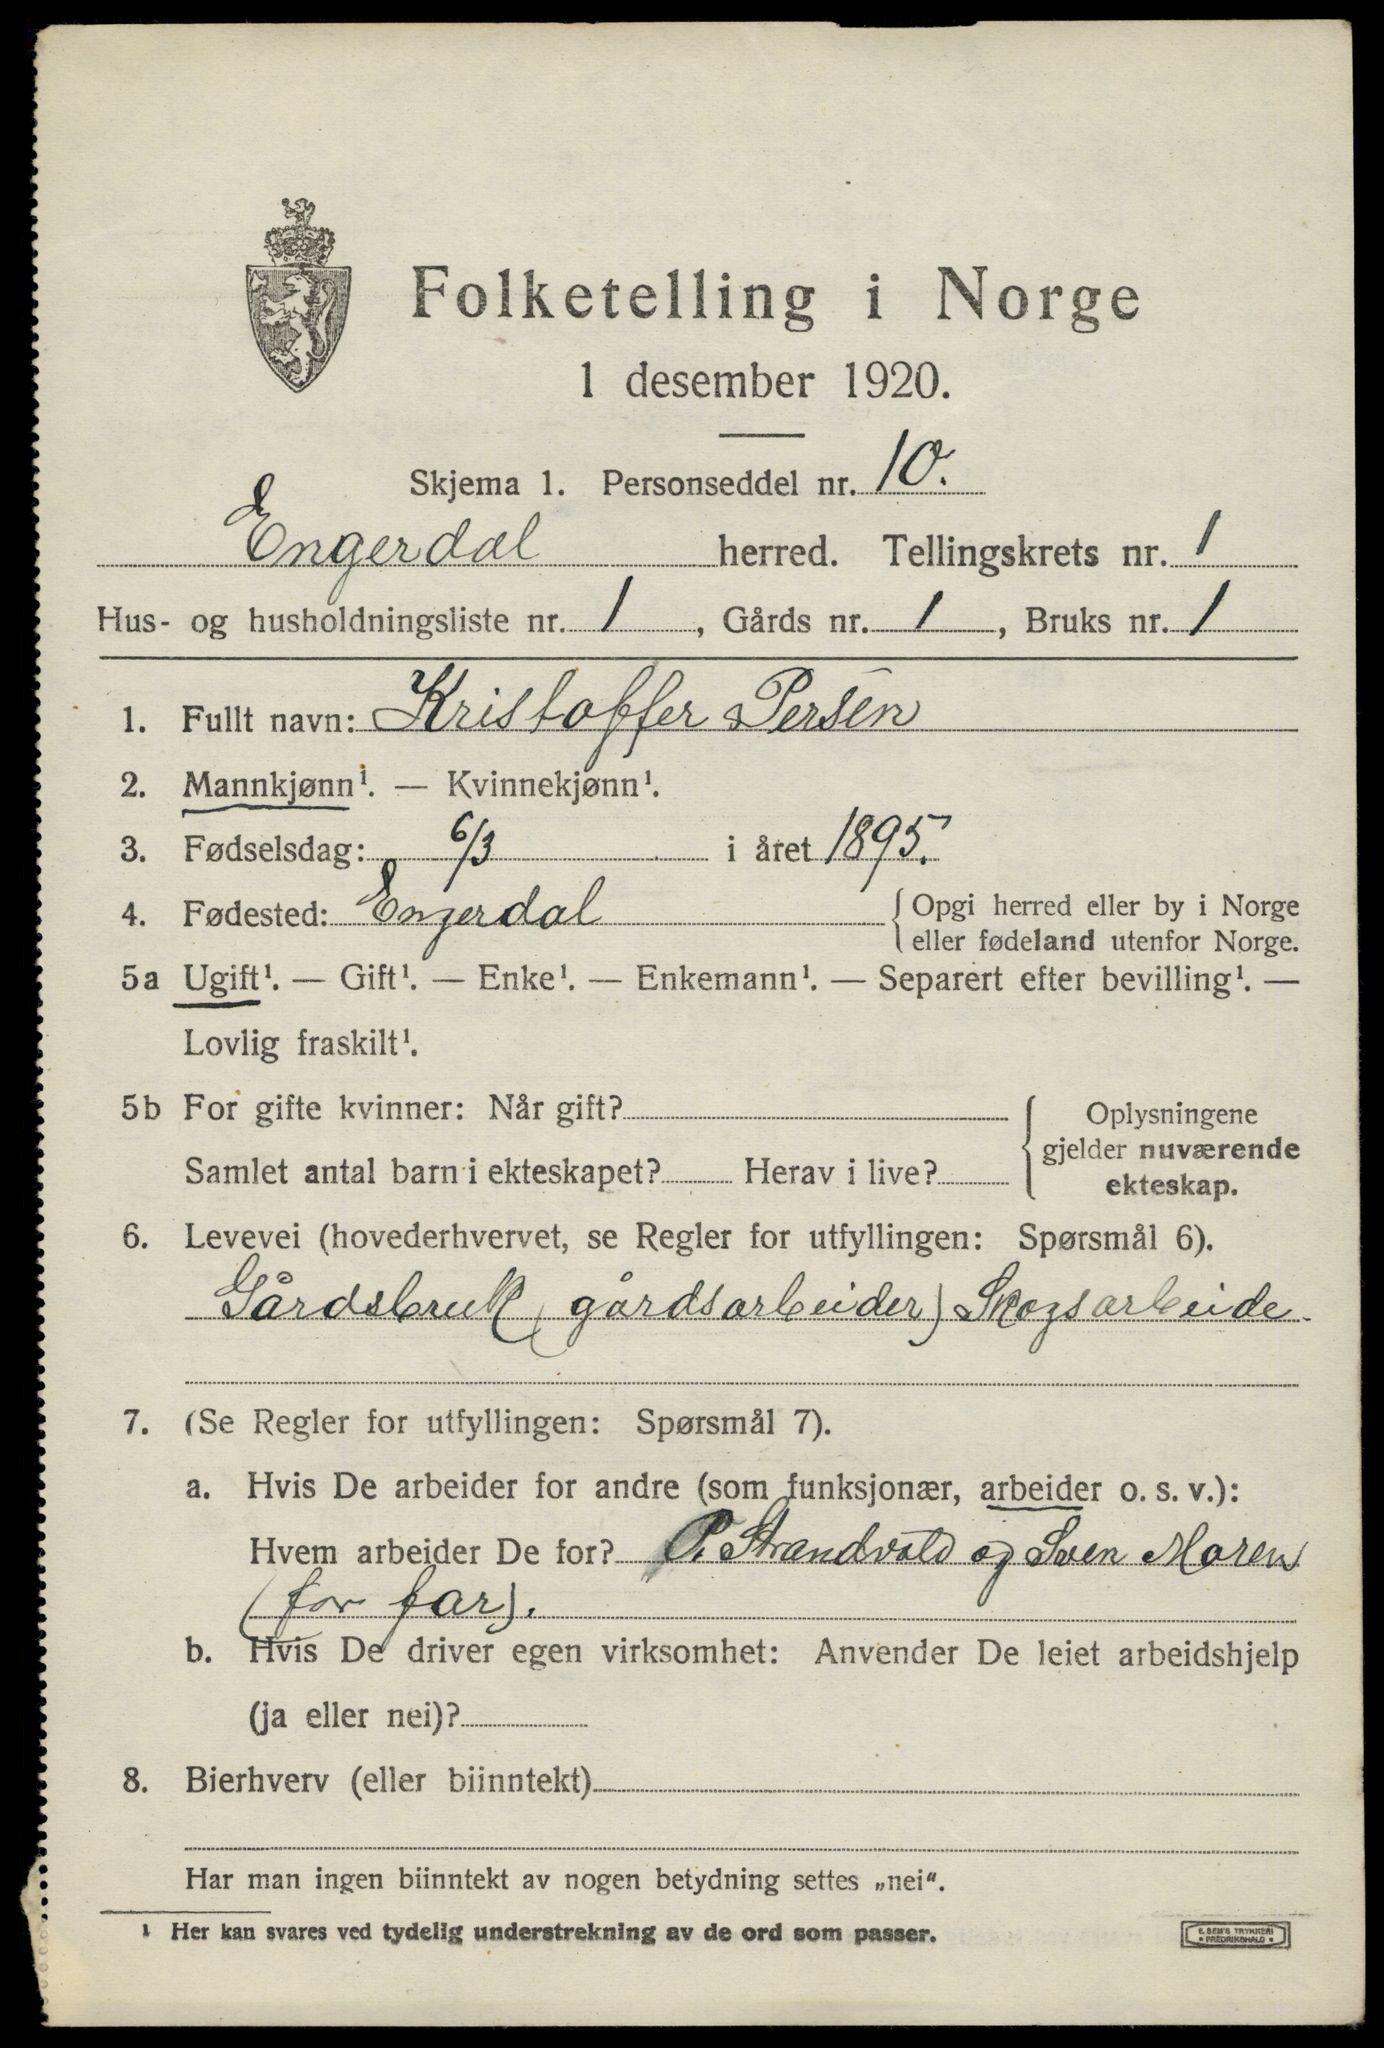 Folketelling i Norge
1 desember 1920.
Skjema 1. Personseddel nr. 10.
Engerdal herred. Tellingskrets nr. 1
Hus- og husholdningsliste nr. 1, Gårds nr. 1, Bruks nr. 1
1. Fullt navn: Kristoffer Persen
2. Mannkjønn¹. — Kvinnekjønn¹.
3. Fødselsdag: 6/3 i året 1895.
4. Fødested: Engerdal { Opgi herred eller by i Norge
eller fødeland utenfor Norge.
5a Ugift¹. — Gift¹. — Enke¹. — Enkemann¹. — Separert efter bevilling¹. —
Lovlig fraskilt¹.
5b For gifte kvinner: Når gift? { Oplysningene
gjelder nuværende
Samlet antal barn i ekteskapet? Herav i live? ekteskap.
6. Levevei (hovederhvervet, se Regler for utfyllingen: Spørsmål 6).
Gårdsbruk (gårdsarbeider) Skogsarbeide
7. (Se Regler for utfyllingen: Spørsmål 7).
a. Hvis De arbeider for andre (som funksjonær, arbeider o. s. v.):
Hvem arbeider De for? P. Strandvold og Sven Moren
(for far).
b. Hvis De driver egen virksomhet: Anvender De leiet arbeidshjelp
(ja eller nei)?
8. Bierhverv (eller biinntekt)
Har man ingen biinntekt av nogen betydning settes „nei".
¹ Her kan svares ved tydelig understrekning av de ord som passer.
E. SEM'S TRYKKERI
* FREDRIKSHALD *